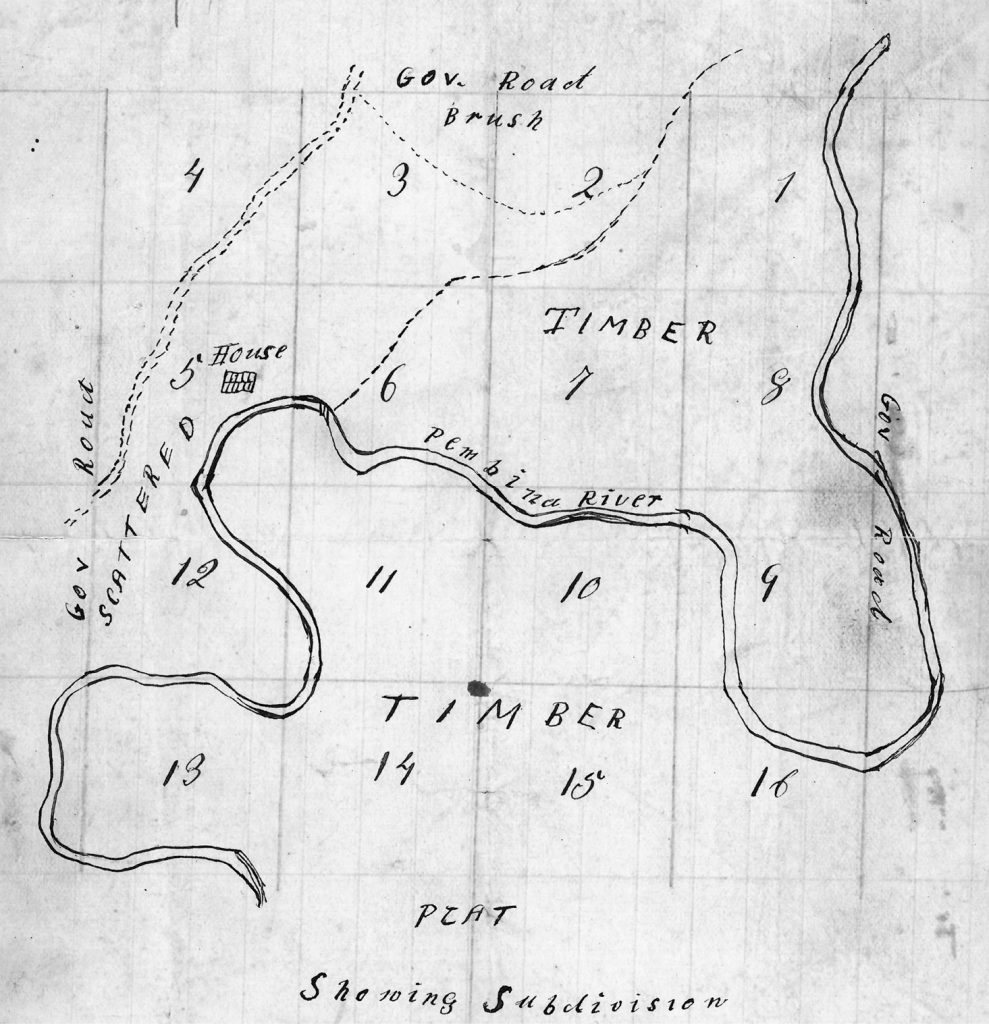 GOV. Road
Brush
4
3
2
1
TIMBER
House
5
6
7
8
GOV Road
SCATTERED
Pembina River
Gov Road
12
11
10
9
TIMBER
13
14
15
16
PLAT
Showing Subdivision